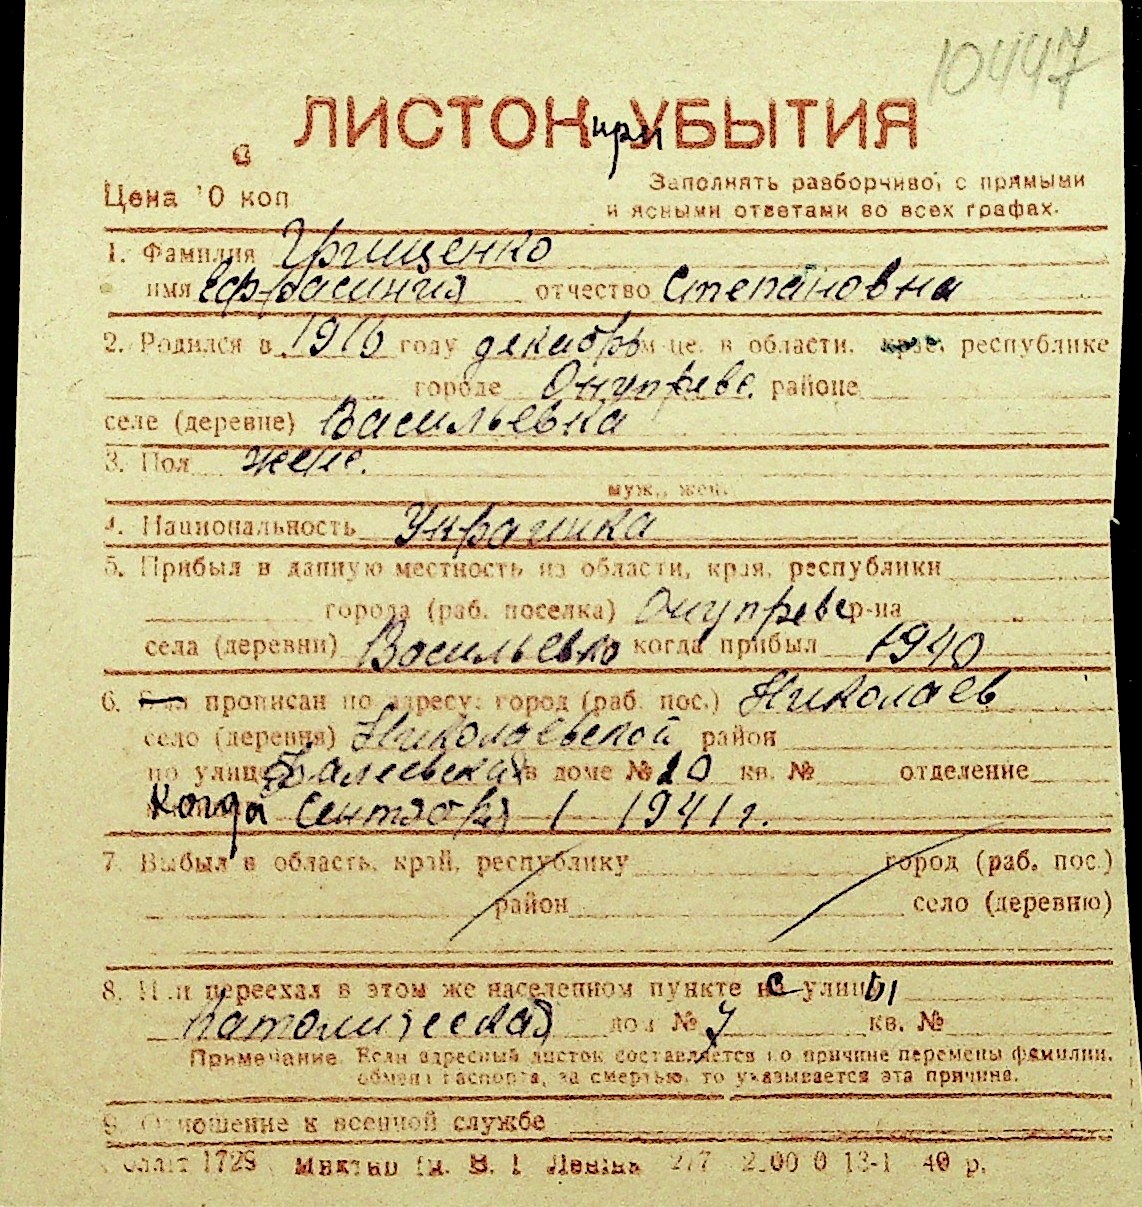 10447
ЛИСТОК при УБЫТИЯ
Цена 10 коп
Заполнять разборчиво, с прямыми
и ясными ответами во всех графах.
1. Фамилия Грищенко
имя Ефрасиния отчество Степановна
2. Родился в 1916 году декабрь м-це. в области, крае, республике
городе Онупреве. районе
селе (деревне) Васильевка
3. Пол жен.
муж., жен.
4. Национальность Украинка
5. Прибыл в данную местность из области, края, республики
города (раб. поселка) Онупревс р-на
села (деревни) Васильевка когда прибыл 1940
6. прописан по адресу: город (раб. пос.) Николаев
село (деревня) Николаевской район
по улице Фалеевская в доме № 20 кв. № отделение
Когда Сентября 1 1941 г.
7. Выбыл в область, край, республику город (раб. пос.)
район село (деревню)
8. Или переехал в этом же населенном пункте с улицы
Католическая дом № 7 кв. №
Примечание. Если адресный листок составляется по причине перемены фамилии,
обмена паспорта, за смертью, то указывается эта причина.
9. Отношение к военной службе
1729 им. В. И. Ленина 277 13-1 40 р.